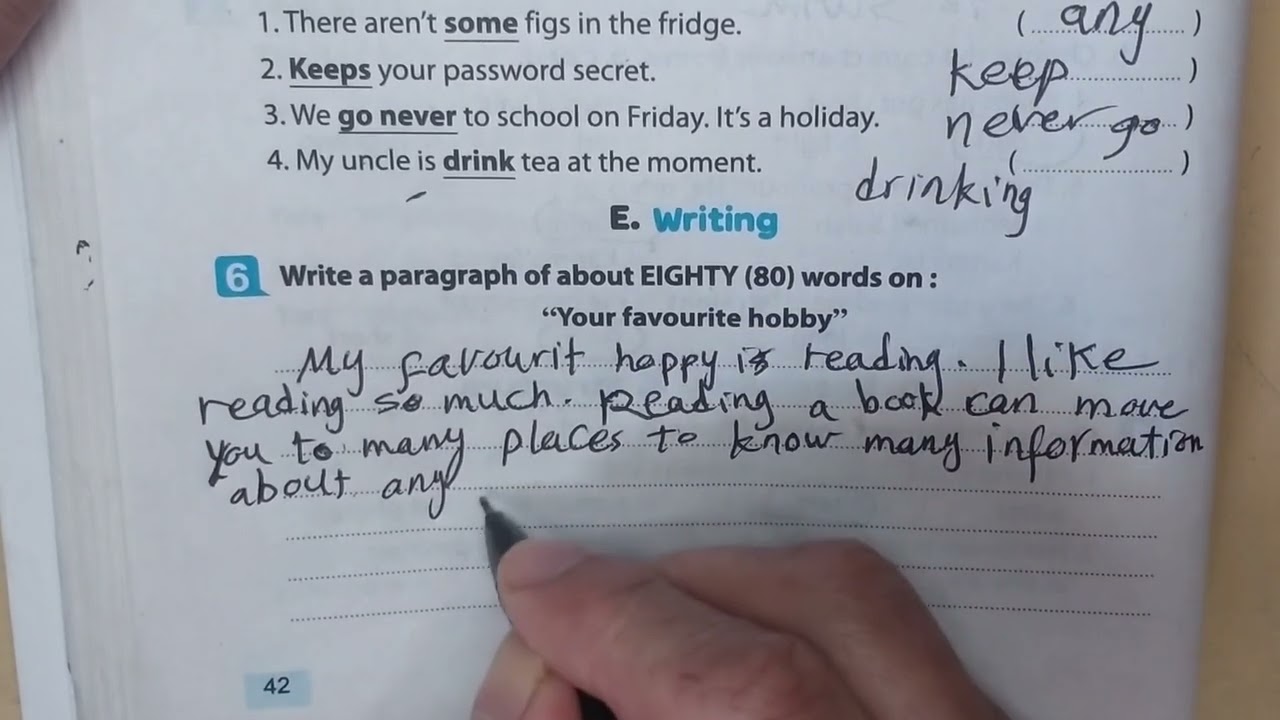 1. There aren't some figs in the fridge. (..........) any
2. Keeps your password secret. keep..........)
3. We go never to school on Friday. It's a holiday. never go..)
4. My uncle is drink tea at the moment. (..........) drinking
E. Writing
6 Write a paragraph of about EIGHTY (80) words on :
"Your favourite hobby"
My favourit happy is reading. I like
reading so much. Reading a book can move
you to many places to know many information
about any
42